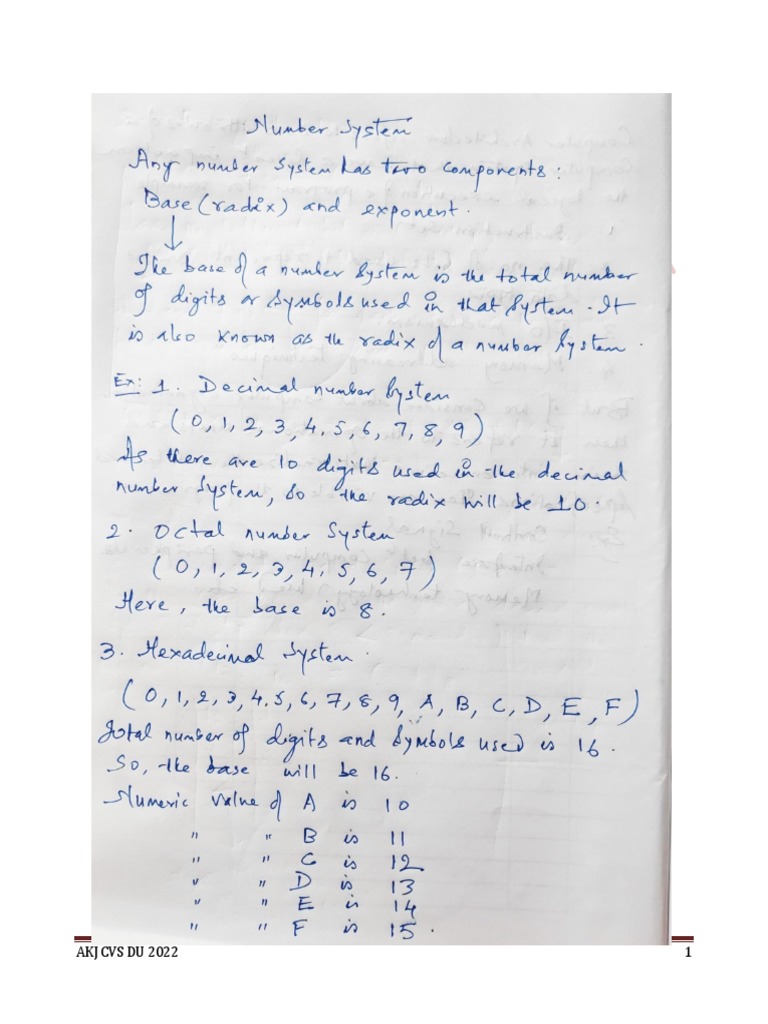 Number System
Any number system has two components:
Base (radix) and exponent.
↓
The base of a number system is the total number
of digits or symbols used in that system. It
is also known as the radix of a number system.
Ex: 1. Decimal number system
(0, 1, 2, 3, 4, 5, 6, 7, 8, 9)
As there are 10 digits used in the decimal
number system, so the radix will be 10.
2. Octal number system
(0, 1, 2, 3, 4, 5, 6, 7)
Here, the base is 8.
3. Hexadecimal System.
(0, 1, 2, 3, 4, 5, 6, 7, 8, 9, A, B, C, D, E, F)
Total number of digits and symbols used is 16.
So, the base will be 16.
Numeric value of A is 10
" " B is 11
" " C is 12
" " D is 13
" " E is 14
" " F is 15.
AKJ CVS DU 2022 1